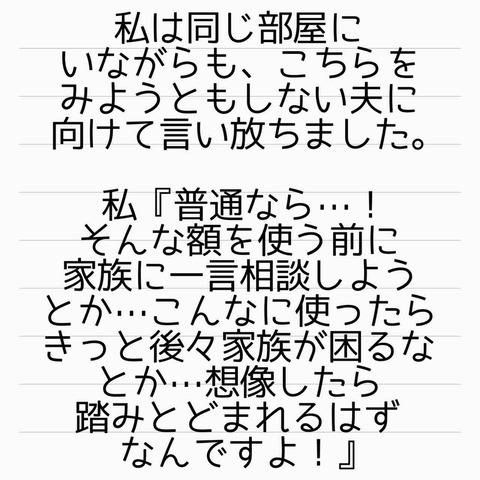 私は同じ部屋に
いながらも、こちらを
みようともしない夫に
向けて言い放ちました。
私『普通なら…！
そんな額を使う前に
家族に一言相談しよう
とか…こんなに使ったら
きっと後々家族が困るな
とか…想像したら
踏みとどまれるはず
なんですよ！』